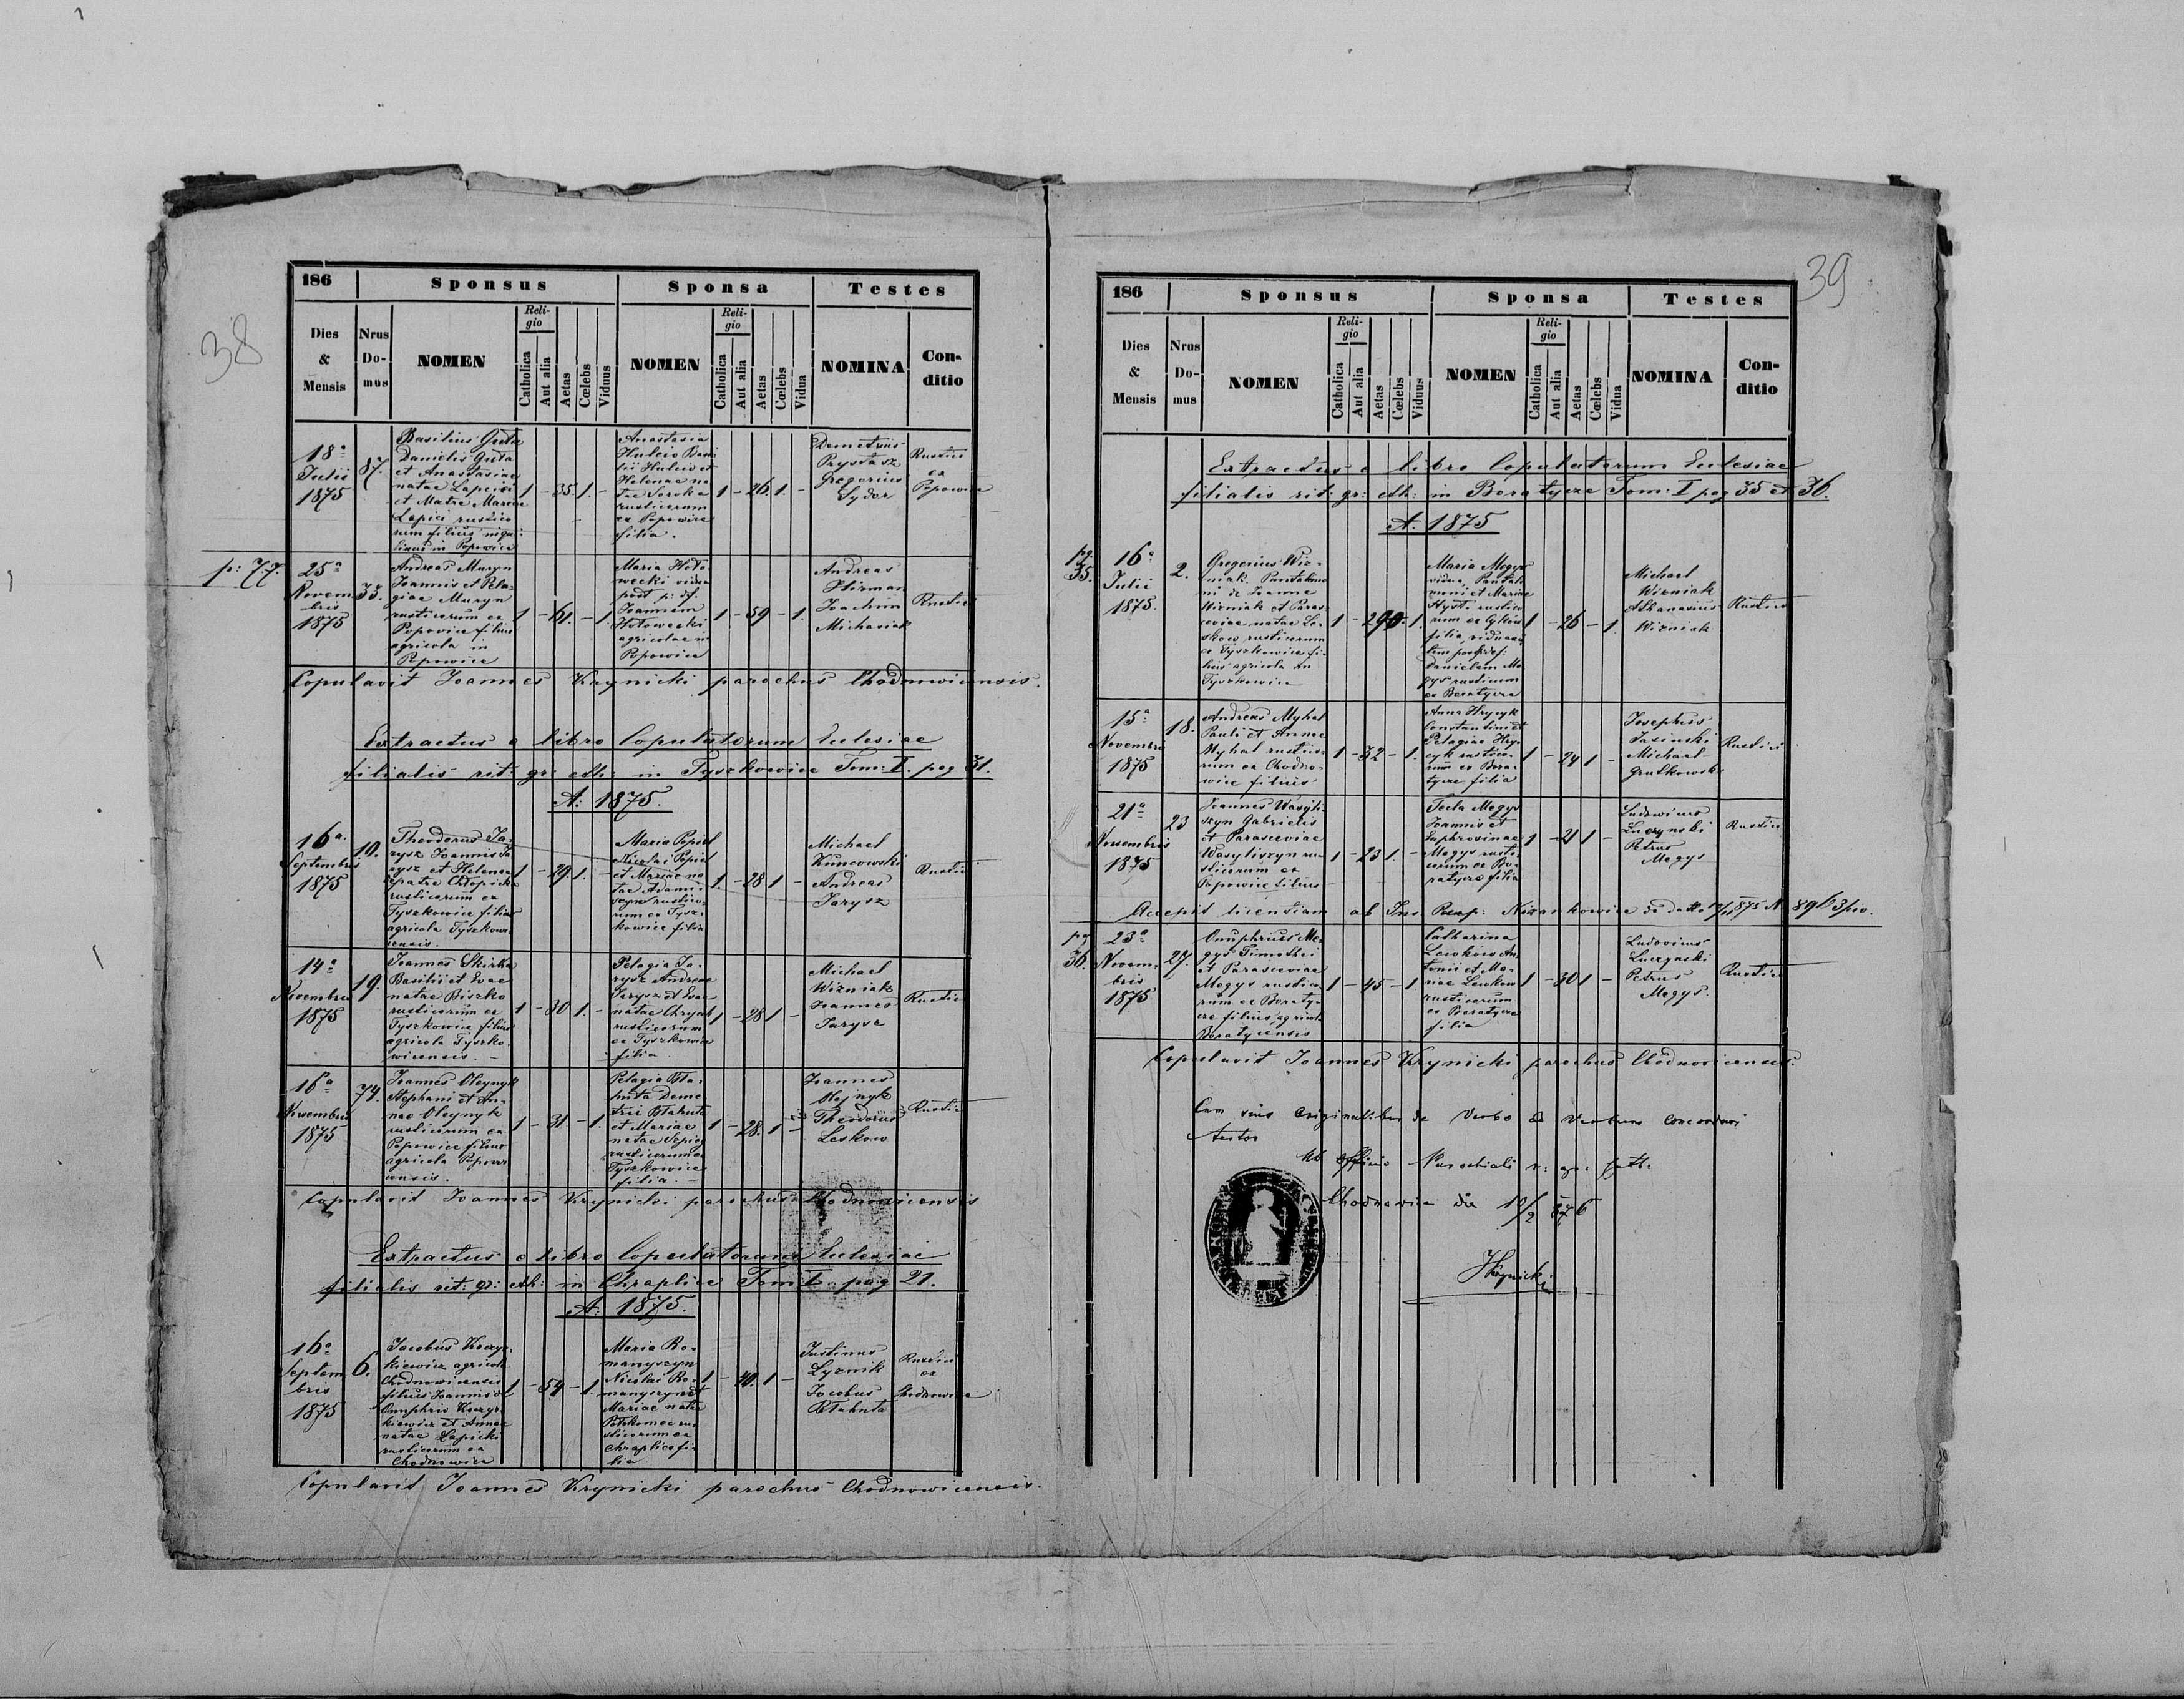 38
186 Sponsus Sponsa Testes
Dies & Mensis Nrus Domus NOMEN Religio Catholica Aut alia Aetas Cœlebs Viduus NOMEN Religio Catholica Aut alia Aetas Cœlebs Vidua NOMINA Conditio
18a Julii 1875
87.
Basilius Guta
Danielis Guta
et Anastasiae
natae
et Matre Mariae
Lapici rustico
rum filius
in Popowice
1 - 35. 1. -
Anastasia
Hulcio Basi
lii Hulcio et
Helenae na
tae Soroka
rusticorum
ex Popowice
filia.
1 - 26. 1. -
Demetrius
Prystasz
Gregorius
Sydor
Rustici
ex
Popowice
p: 77.
25a
Novem
bris
1875
33.
Andreas Muryn
Joannis et Pela-
giae Muryn
rusticorum ex
Popowice filius
agricola in
Popowice
1 - 61. - 1.
Maria Hoto-
wecki vidua
post p: df:
Joannem
Hotowecki
agricolae in
Popowice
1 - 59 - 1.
Andreas
Hirman
Joachim
Michasiak
Rustici
Copulavit Joannes Krynicki parochus Chodnowicensis.
Extractus e libro Copulatorum Ecclesiae
filialis rit: gr: cth: in Tyszkowice Tom: I. pag 31.
A: 1875.
16a.
Septembris
1875
10.
Theodorus Ja-
rysz Joannis Ja
rysz et Helenae
e patre Chlopick
rusticorum ex
Tyszkowice filius
agricola Tyszkowi
censis.
1 - 29 1. -
Maria Popiel
Nicolai Popiel
et Mariae na
tae Adami-
szyn rustico-
rum ex Tysz-
kowice filia
1. - 28 1 -
Michael
Kuncowski
Andreas
Jarysz
Rustici
14a
Novembris
1875
19.
Joannes Skirka
Basilii et Evae
natae Biszko
rusticorum ex
Tyszkowice filius
agricola Tyszko-
wicensis. -
1 - 30 1. -
Pelagia Ja-
rysz Andreae
Jarysz et Evae
natae Chrych
rusticorum
ex Tyszkowice
filia
1 - 28 1 -
Michael
Wizniak
Joannes
Jarysz
Rustici
16a
Novembris
1875
74.
Joannes Oleynyk
Stephani et An-
nae Oleynyk
rusticorum ex
Popowice filius
agricola Popowi
censis.
1 - 31 - 1.
Pelagia Bla-
huta Deme-
trii Blahuta
et Mariae
natae Sopieg
rusticorum ex
Tyszkowice
filia. -
1 - 28. 1 -
Joannes
Olejnyk
Theodorus
Leskow
Rustici
Copulavit Joannes Krynicki parochus Chodnowicensis
Extractus e libro Copulatorum Ecclesiae
filialis rit: gr: cth: in Chraplice Tom: I pag 21.
A: 1875.
16a
Septem
bris
1875
6.
Jacobus Korzy-
kiewicz agricola
Chodnowicensis
filius Joannis de
Onuphrio Korzy-
kiewicz et Annae
natae Lapicki
rusticorum ex
Chodnowice
1 - 59 - 1.
Maria Ro-
manyszyn
Nicolai Ro-
manyszyn et
Mariae natae
Potokomec ru-
sticorum ex
Chraplice fi-
lia
1 - 40. 1 -
Justinus
Lyznik
Jacobus
Blahuta
Rustici
ex
Chodnowice
Copulavit Joannes Krynicki parochus Chodnowicensis.
39
186 Sponsus Sponsa Testes
Dies & Mensis Nrus Domus NOMEN Religio Catholica Aut alia Aetas Cœlebs Viduus NOMEN Religio Catholica Aut alia Aetas Cœlebs Vidua NOMINA Conditio
Extractus e libro Copulatorum Ecclesiae
filialis rit: gr: cth: in Boratycze Tom: I pag 35 et 36.
A. 1875
pg. 35.
16a
Julii
1875.
2.
Gregorius Wiz-
niak Pantalemo
ni de Joanne
Wizniak et Paras-
ceviae natae Le-
skow rusticorum
ex Tyszkowice fi-
lius agricola in
Tyszkowice
1 - 29 - 1.
Maria Megys
vidua, Pantale
moni et Mariae
Hysti rustico
rum ex Cykow
filia, vidua au-
tem post def:
Danielem Me
gys rusticum
ex Boratycze
1 - 26 - 1.
Michael
Wizniak
Athanasius
Wizniak
Rustici
15a
Novembris
1875
18.
Andreas Myhal
Pauli et Annae
Myhal rustico-
rum ex Chodno-
wice filius
1 - 32 - 1.
Anna Hrycyk
Constantini et
Pelagiae Hry-
cyk rustico-
rum ex Bora-
tycze filia
1 - 24 1 -
Josephus
Jasinski
Michael
Grutkowski
Rustici
21a
Novembris
1875
23
Joannes Wasyli-
szyn Gabrielis
et Parasceviae
Wasyliszyn ru-
sticorum ex
Popowice filius
1 - 23 1. -
Tecla Megys
Joannis et
Euphrosinae
Megys rusti-
corum ex Bo-
ratycze filia
1 - 21 1 -
Ludowicus
Luczynski
Petrus
Megys
Rustici
Accepit licentiam ab Ins. Nizankowice de dato 1875 N 896 3pro.
pg 36.
23a
Novem-
bris
1875
27.
Onuphrius Me-
gys Timothei
et Parasceviae
Megys rustico-
rum ex Boraty-
cze filius, agricola
Boratycensis
1 - 45 - 1
Catharina
Lewkow An-
tonii et Ma-
riae Lewkow
rusticorum
ex Boratycze
filia
1 - 30 1 -
Ludovicus
Luczynski
Petrus
Megys.
Rustici
Copulavit Joannes Krynicki parochus Chodnowicensis.
Cum suis originalibus de verbo ad verbum concordari
testor
Ab officio Parochiali r: gr: cath:
Chodnowice die 10/2 876
JKrynicki